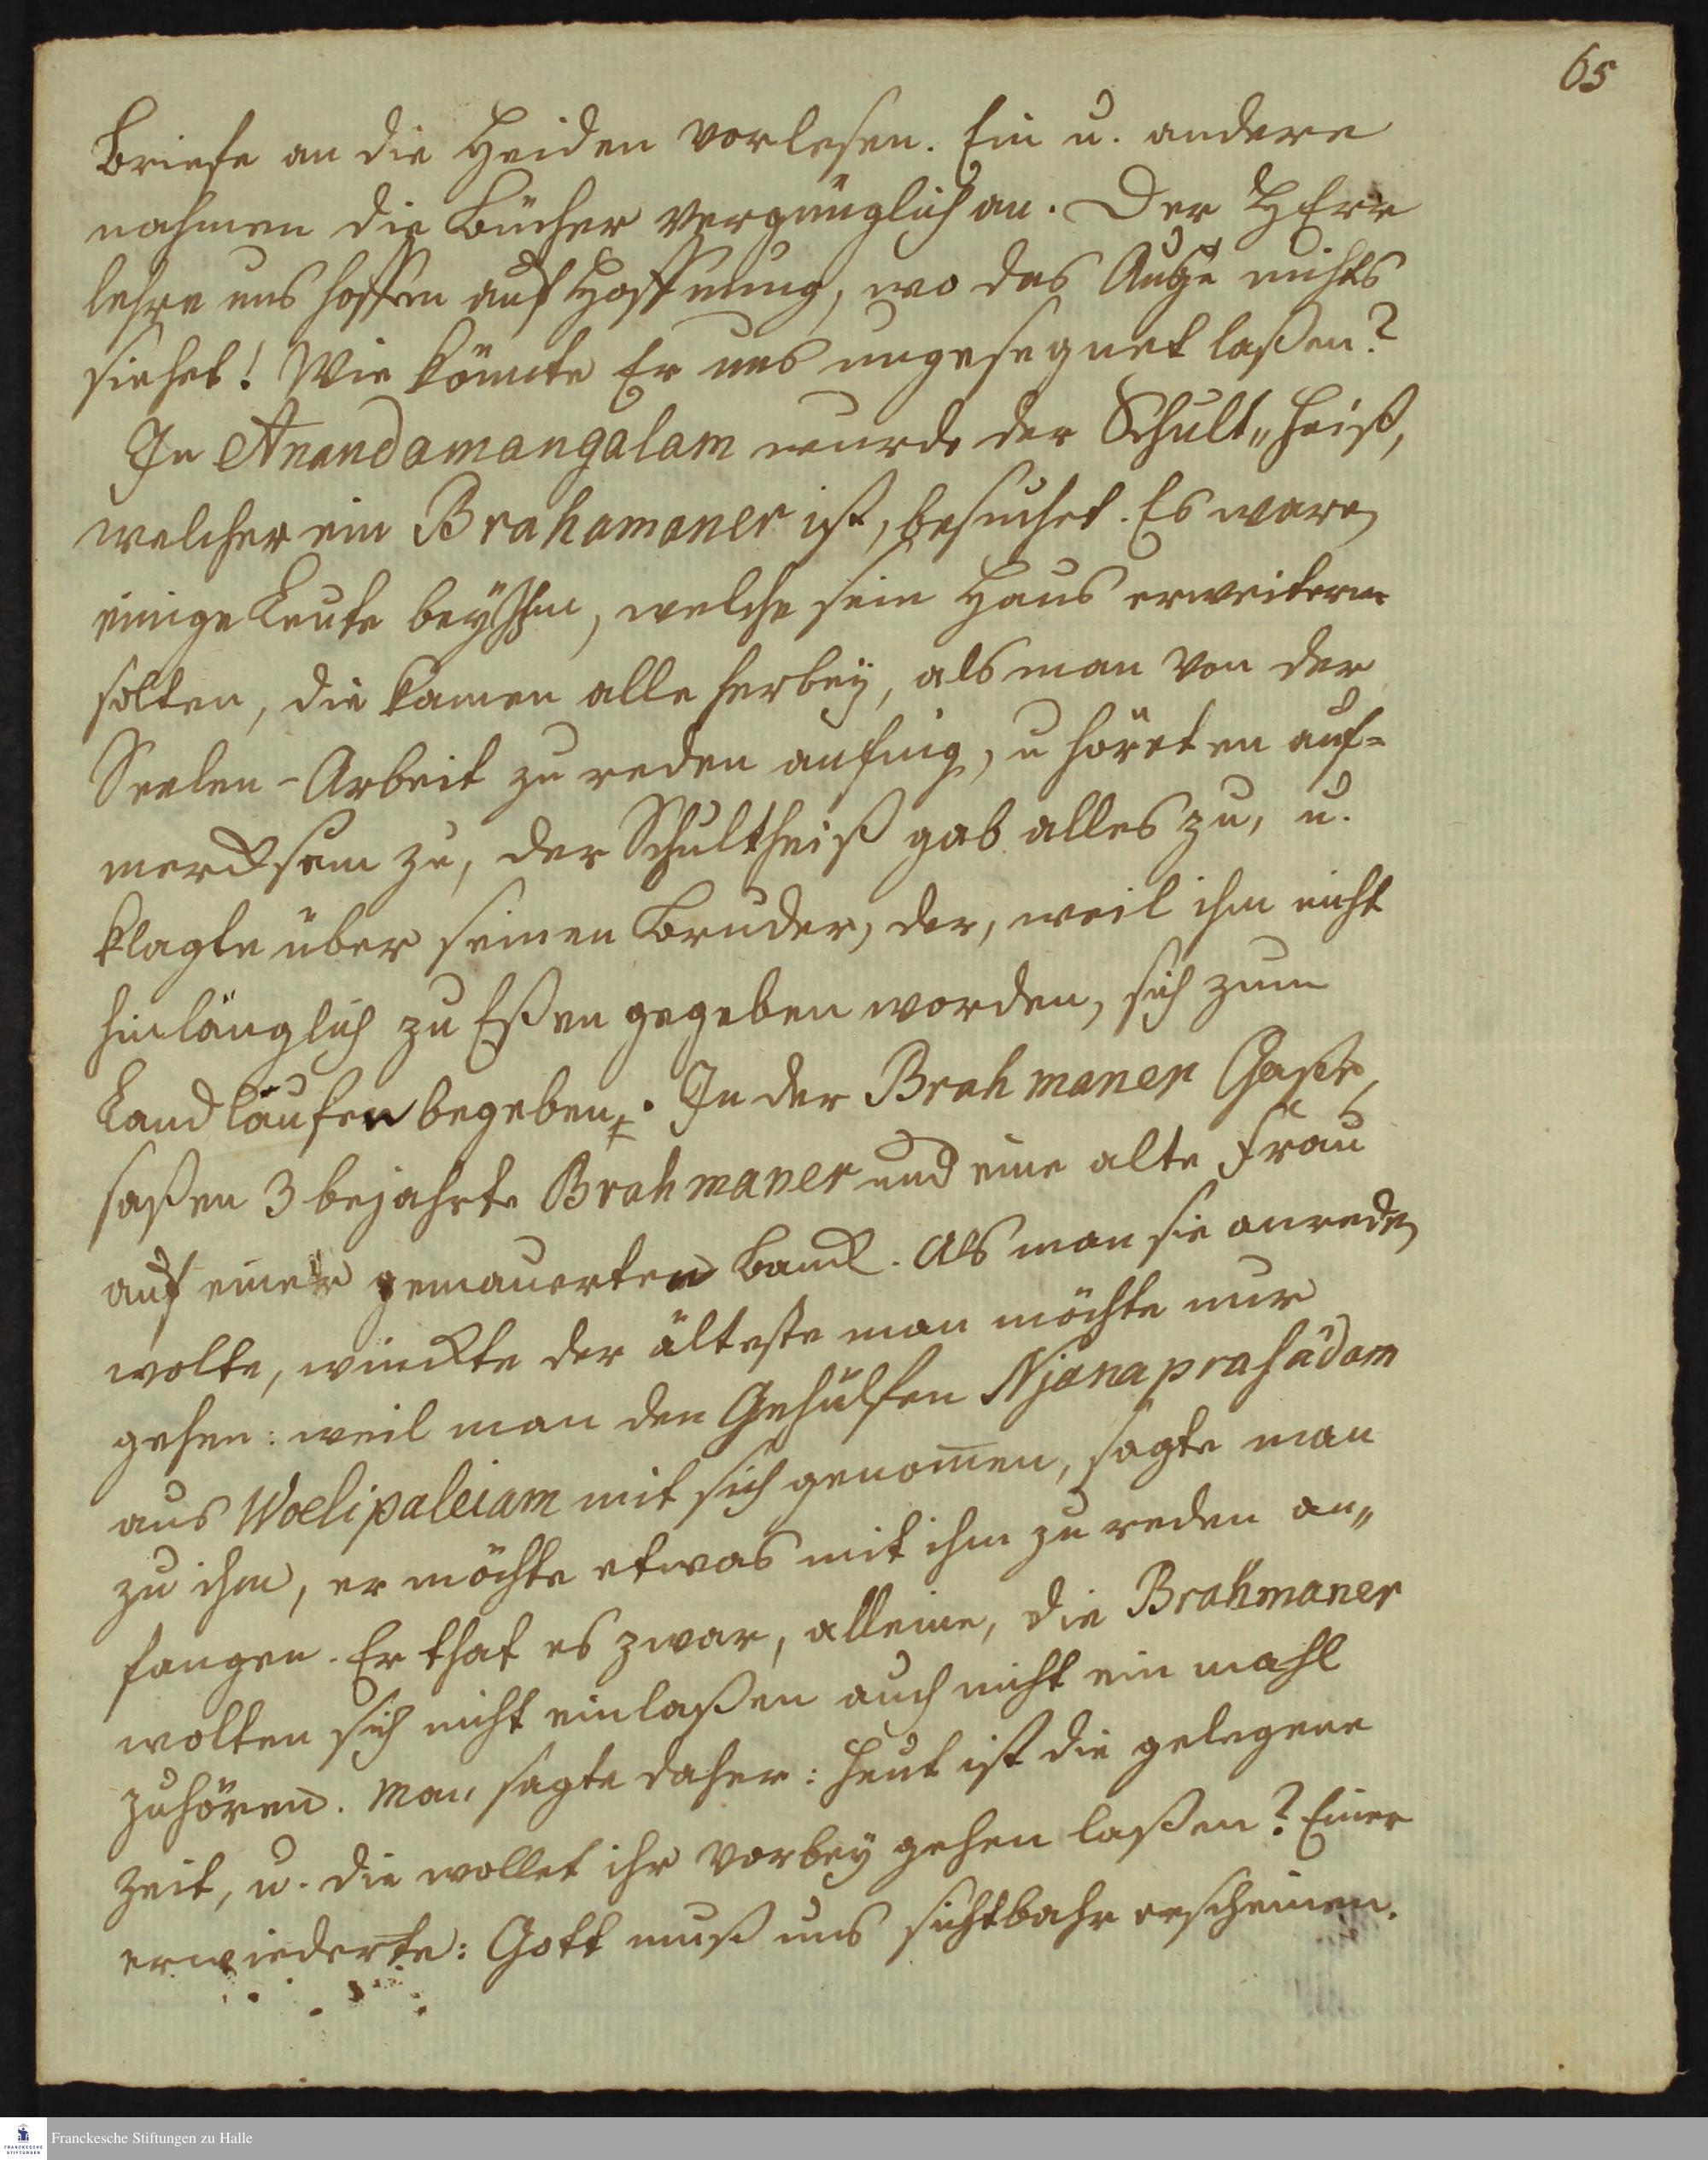 65
Briefe an die Heiden vorlesen. Ein u. andere
nahmen die Bücher vergnüglich an. Der HErr
lehre uns hoffen auf Hoffnung, wo das Auge nichts
siehet! Wie könnte Er uns ungesegnet laßen?
In Anandamangalam wurde der Schult„heiß,
welcher ein Brahamaner ist, besuchet. Es waren
einige Leute bey Ihm, welche sein Haus erweitern
solten, die kamen alle herbey, als man von der
Seelen-Arbeit zu reden anfing, u höreten auf=
mercksam zu, der Schultheiß gab alles zu, u.
klagte über seinen Bruder, der, weil ihm nicht
hinlänglich zu Eßen gegeben worden, sich zum
Landläufern begeben. In der Brahmaner Gaße
saßen 3 bejahrte Brahmaner und eine alte Frau
auf einer gemauerten Banck. Als man sie anreden
wolte, winckte der älteste man möchte nur
gehen: weil man den Gehülfen Njanaprahâdam
aus Woelipaleiam mit sich genom̅en, sagte man
zu ihm, er möchte etwas mit ihm zu reden an„
fangen. Er that es zwar, alleine, die Brahmaner
wolten sich nicht einlaßen auch nicht ein mahl
zuhören. Man sagte daher: Heut ist die gelegene
Zeit, u. die wollet ihr vorbey gehen laßen? Einer
erwiederte: Gott muß uns sichtbahr erscheinen.
Franckesche Stiftungen zu Halle